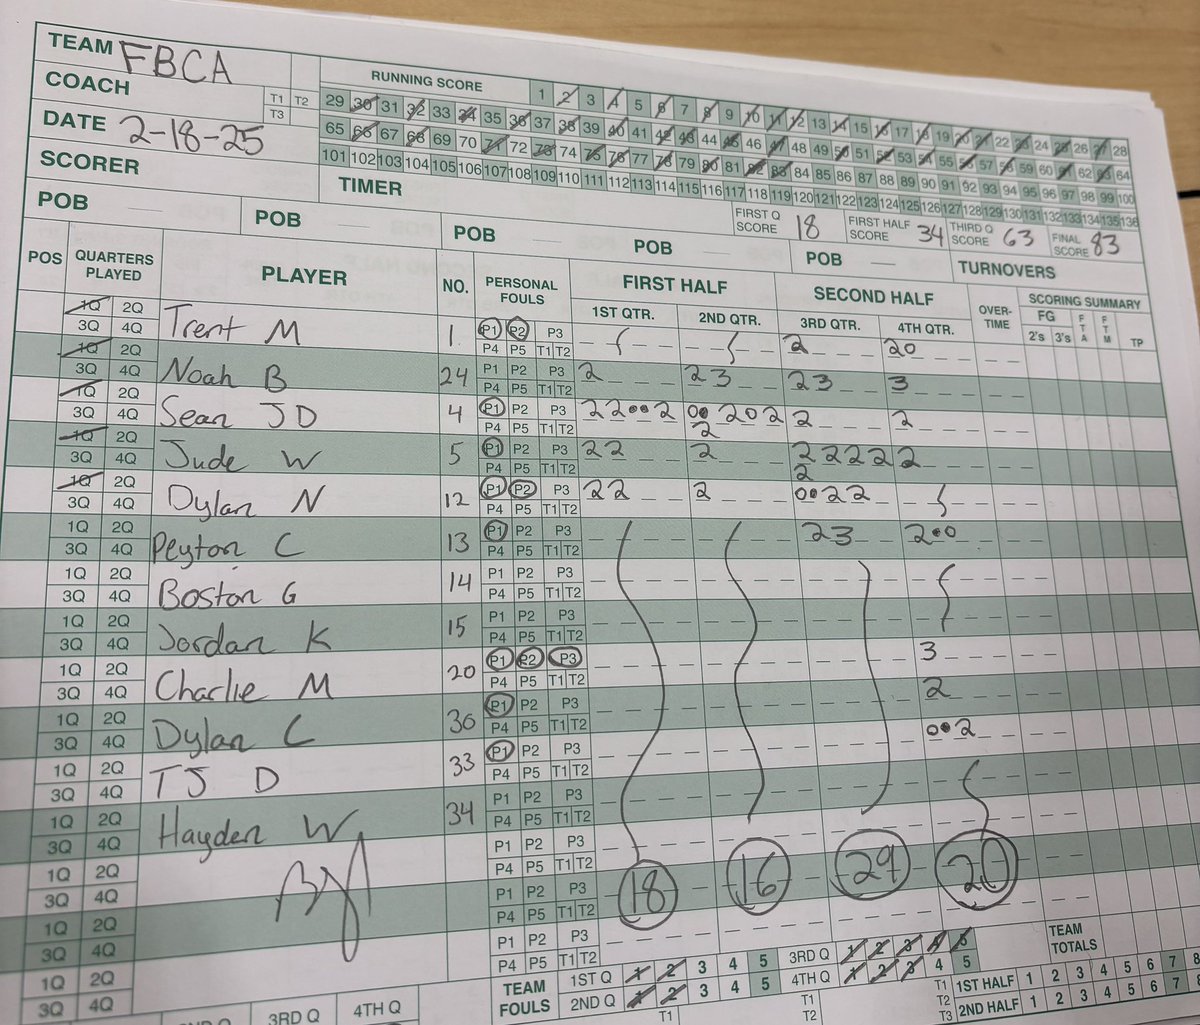 TEAM FBCA
COACH
T1 T2
T3
DATE 2-18-25
SCORER
RUNNING SCORE 1 2 3 4 5 6 7 8 9 10 11 12 13 14 15 16 17 18 19 20 21 22 23 24 25 26 27 28
29 30 31 32 33 34 35 36 37 38 39 40 41 42 43 44 45 46 47 48 49 50 51 52 53 54 55 56 57 58 59 60 61 62 63 64
65 66 67 68 69 70 71 72 73 74 75 76 77 78 79 80 81 82 83 84 85 86 87 88 89 90 91 92 93 94 95 96 97 98 99 100
101 102 103 104 105 106 107 108 109 110 111 112 113 114 115 116 117 118 119 120 121 122 123 124 125 126 127 128 129 130 131 132 133 134 135 136
TIMER
FIRST Q SCORE 18 FIRST HALF SCORE 34 THIRD Q SCORE 63 FINAL SCORE 83
POB POB POB POB POB TURNOVERS
POS QUARTERS PLAYED PLAYER NO. PERSONAL FOULS FIRST HALF SECOND HALF OVER-TIME SCORING SUMMARY
1ST QTR. 2ND QTR. 3RD QTR. 4TH QTR. FG FTA FTM TP
2's 3's
1Q 2Q Trent M 1 P1 P2 P3 2 20
3Q 4Q P4 P5 T1 T2
1Q 2Q Noah B 24 P1 P2 P3 2 23 23 3
3Q 4Q P4 P5 T1 T2
1Q 2Q Sean JD 4 P1 P2 P3 22••2 0•202 2 2
3Q 4Q P4 P5 T1 T2 2
1Q 2Q Jude W 5 P1 P2 P3 22 2 22222 2
3Q 4Q P4 P5 T1 T2 2
1Q 2Q Dylan N 12 P1 P2 P3 22 2 0•22
3Q 4Q P4 P5 T1 T2
1Q 2Q Peyton C 13 P1 P2 P3 23 2•0
3Q 4Q P4 P5 T1 T2
1Q 2Q Boston G 14 P1 P2 P3
3Q 4Q P4 P5 T1 T2
1Q 2Q Jordan K 15 P1 P2 P3
3Q 4Q P4 P5 T1 T2
1Q 2Q Charlie M 20 P1 P2 P3 3
3Q 4Q P4 P5 T1 T2
1Q 2Q Dylan C 30 P1 P2 P3 2
3Q 4Q P4 P5 T1 T2
1Q 2Q TJ D 33 P1 P2 P3 0•2
3Q 4Q P4 P5 T1 T2
1Q 2Q Hayden W 34 P1 P2 P3
3Q 4Q P4 P5 T1 T2
1Q 2Q P1 P2 P3
3Q 4Q P4 P5 T1 T2
1Q 2Q P1 P2 P3 18 16 29 20
3Q 4Q P4 P5 T1 T2
1Q 2Q P1 P2 P3
3Q 4Q P4 P5 T1 T2
TEAM FOULS 1ST Q 1 2 3 4 5 3RD Q 1 2 3 4 5 TEAM TOTALS
2ND Q 1 2 3 4 5 4TH Q 1 2 3 4 5
T1 T1 T1 1ST HALF 1 2 3 4 5 6 7 8
T2 T2 2ND HALF 1 2 3 4 5 6 7 8
T3
2ND Q 3RD Q 4TH Q